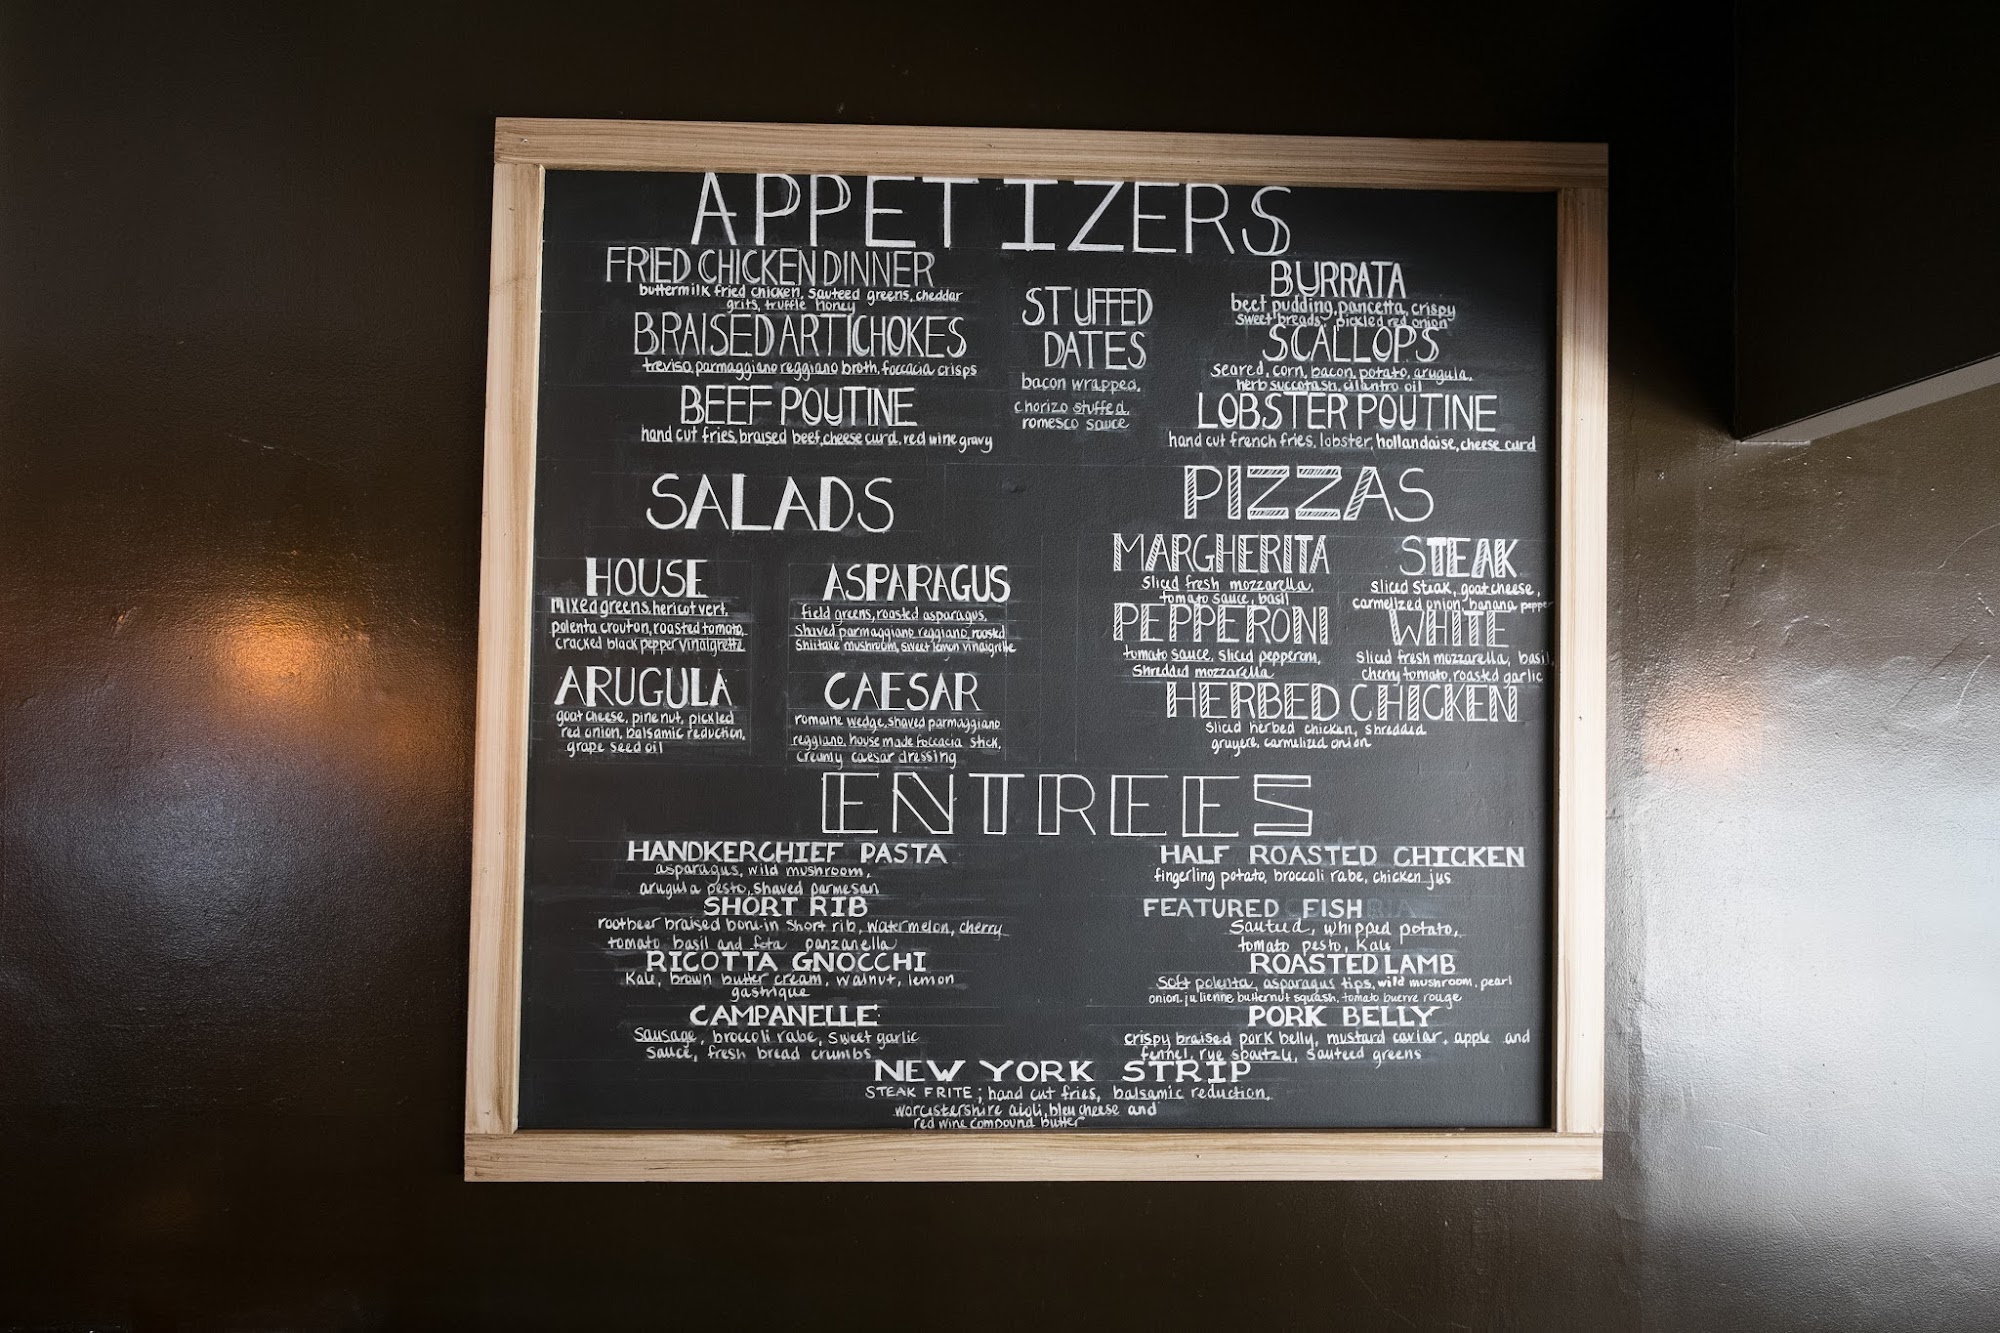 APPETIZERS
FRIED CHICKEN DINNER
buttermilk fried chicken, sauteed greens, cheddar
grits, truffle honey
BRAISED ARTICHOKES
treviso, parmaggiano reggiano broth, foccacia crisps
BEEF POUTINE
hand cut fries, braised beef, cheese curd, red wine gravy
STUFFED
DATES
bacon wrapped,
chorizo stuffed,
romesco sauce
BURRATA
beet pudding, pancetta, crispy
sweet breads, pickled red onion
SCALLOPS
seared, corn, bacon, potato, arugula,
herb succotash, cilantro oil
LOBSTER POUTINE
hand cut french fries, lobster, hollandaise, cheese curd
SALADS
HOUSE
mixed greens, hericot vert,
polenta crouton, roasted tomato,
cracked black pepper vinaigrette
ASPARAGUS
field greens, roasted asparagus,
shaved parmaggiano reggiano, roasted
shiitake mushroom, sweet lemon vinaigrette
ARUGULA
goat cheese, pine nut, pickled
red onion, balsamic reduction,
grape seed oil
CAESAR
romaine wedge, shaved parmaggiano
reggiano, house made foccacia stick,
creamy caesar dressing
PIZZAS
MARGHERITA
sliced fresh mozzarella,
tomato sauce, basil
STEAK
sliced steak, goat cheese,
carmelized onion, banana pepper
PEPPERONI
tomato sauce, sliced pepperoni,
shredded mozzarella
WHITE
sliced fresh mozzarella, basil,
cherry tomato, roasted garlic
HERBED CHICKEN
sliced herbed chicken, shredded
gruyere, carmelized onion
ENTREES
HANDKERCHIEF PASTA
asparagus, wild mushroom,
arugula pesto, shaved parmesan
SHORT RIB
rootbeer braised bone-in short rib, watermelon, cherry
tomato, basil and feta panzanella
RICOTTA GNOCCHI
Kale, brown butter cream, walnut, lemon
gastrique
CAMPANELLE
Sausage, broccoli rabe, sweet garlic
sauce, fresh bread crumbs
HALF ROASTED CHICKEN
fingerling potato, broccoli rabe, chicken jus
FEATURED FISH
Sauteed, whipped potato,
tomato pesto, Kale
ROASTED LAMB
Soft polenta, asparagus tips, wild mushroom, pearl
onion, julienne butternut squash, tomato buerre rouge
PORK BELLY
crispy braised pork belly, mustard caviar, apple and
fennel, rye spatzu, sauteed greens
NEW YORK STRIP
STEAK FRITE; hand cut fries, balsamic reduction,
worcistershire aioli, bleu cheese and
red wine compound butter